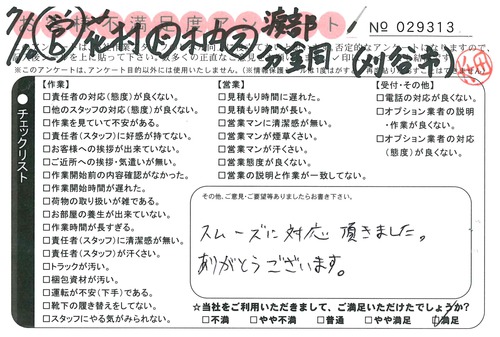 No 029313
7/10 (営)
(刈谷市)
※このアンケートは、アンケート目的以外には使用いたしません。
チェックリスト
【作業】
□責任者の対応(態度)が良くない。
□他のスタッフの対応(態度)が良くない。
□作業を見ていて不安がある。
□責任者(スタッフ)に好感が持てない。
□お客様への挨拶が出来ていない。
□ご近所への挨拶・気遣いが無い。
□作業開始前の内容確認がなかった。
□作業開始時間が遅れた。
□荷物の取り扱いが雑である。
□お部屋の養生が出来ていない。
□作業時間が長すぎる。
□責任者(スタッフ)に清潔感が無い。
□責任者(スタッフ)が汗くさい。
□トラックが汚い。
□梱包資材が汚い。
□運転が不安(下手)である。
□靴下の履き替えをしてない。
□スタッフにやる気がみられない。
【営業】
□見積もり時間に遅れた。
□見積もり時間が長い。
□営業マンに清潔感が無い。
□営業マンが煙草くさい。
□営業マンが汗くさい。
□営業態度が良くない。
□営業の説明と作業が一致してない。
【受付・その他】
□電話の対応が良くない。
□オプション業者の説明
・作業が良くない。
□オプション業者の対応
(態度)が良くない。
その他、ご意見・ご要望等ありましたらお書き下さい。
スムーズに対応頂きました。
ありがとうございます。
☆当社をご利用いただきまして、ご満足いただけたでしょうか?
□不満 □やや不満 □普通 □やや満足 □満足